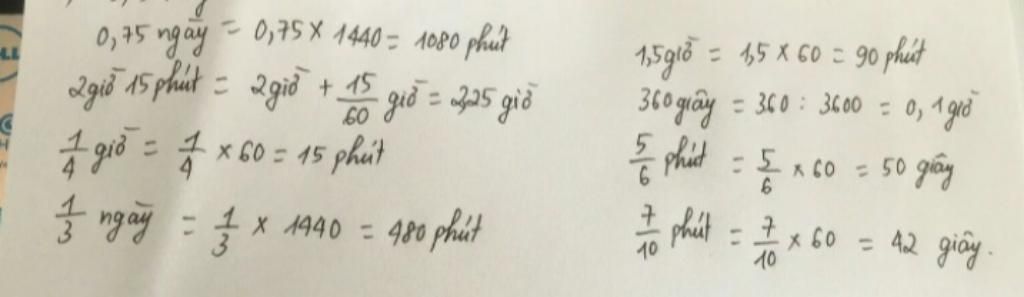 0,75 ngày = 0,75 × 1440 = 1080 phút
2 giờ 15 phút = 2 giờ + 15/60 giờ = 2,25 giờ
1/4 giờ = 1/4 × 60 = 15 phút
1/3 ngày = 1/3 × 1440 = 480 phút
1,5 giờ = 1,5 × 60 = 90 phút
360 giây = 360 : 3600 = 0,1 giờ
5/6 phút = 5/6 × 60 = 50 giây
7/10 phút = 7/10 × 60 = 42 giây.